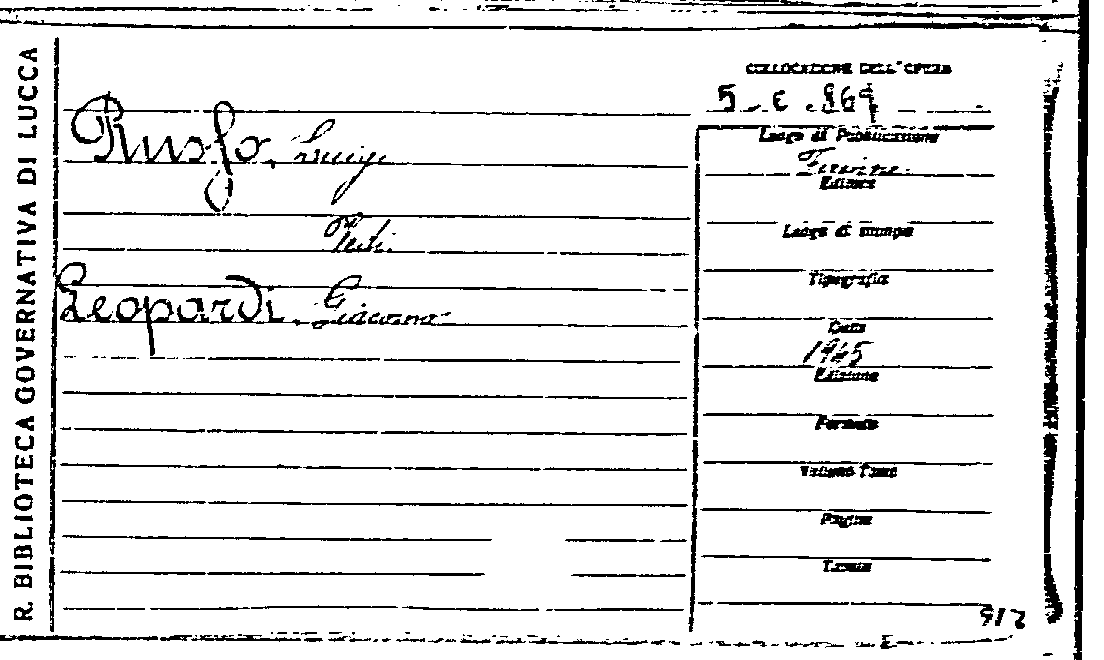 R. BIBLIOTECA GOVERNATIVA DI LUCCA
COLLOCAZIONE DELL'OPERA
5. C. 869
Russo, Luigi
Vedi:
Leopardi, Giacomo
Luogo di Pubblicazione
Firenze
Editore
Luogo di stampa
Tipografia
Data
1945
Edizione
Formato
Volume Tomo
Pagine
Tavole